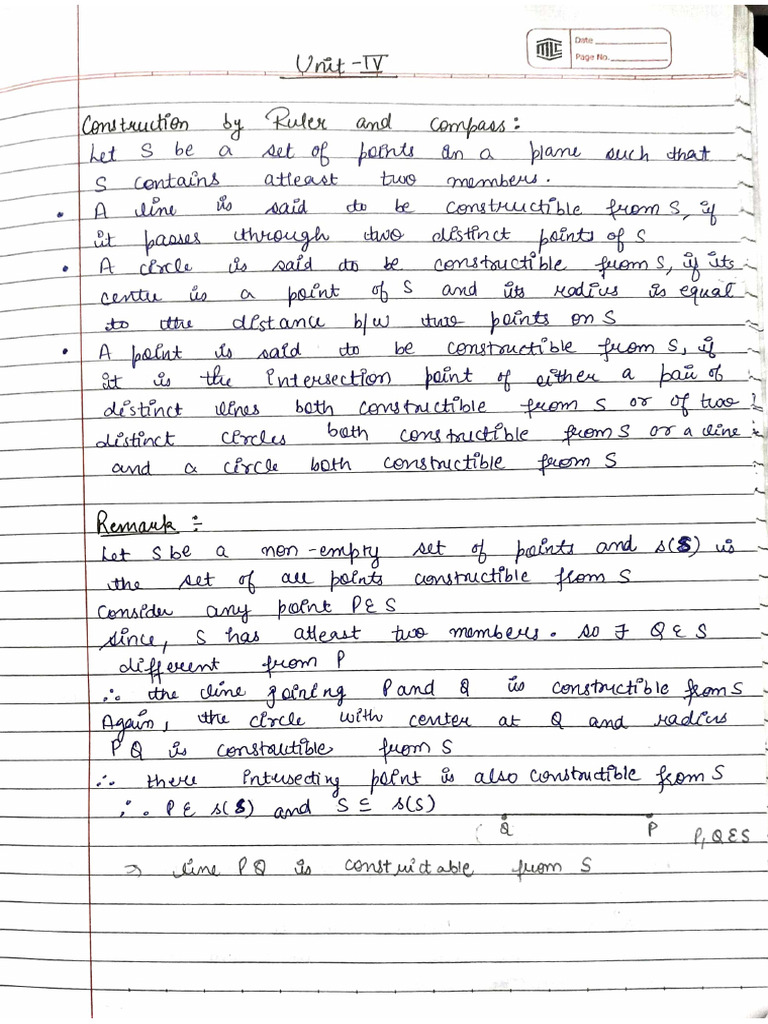 MLC
Date
Page No.
Unit-IV
Construction by Ruler and compass:
Let S be a set of points in a plane such that
S contains atleast two members.
• A line is said to be constructible from S, if
it passes through two distinct points of S
• A circle is said to be constructible from S, if its
centre is a point of S and its radius is equal
to the distance b/w two points on S
• A point is said to be constructible from S, if
it is the intersection point of either a pair of
distinct lines both constructible from S or of two
distinct circles both constructible from S or a line
and a circle both constructible from S
Remark :-
Let S be a non-empty set of points and s(S) is
the set of all points constructible from S
Consider any point P ∈ S
since, S has atleast two members. so ∃ Q ∈ S
different from P
∴ the line joining P and Q is constructible from S
Again, the circle with center at Q and radius
PQ is constructible from S
∴ there intersecting point is also constructible from S
∴ P ∈ s(S) and S ⊆ s(S)
Q P P, Q ∈ S
⇒ line PQ is constructable from S